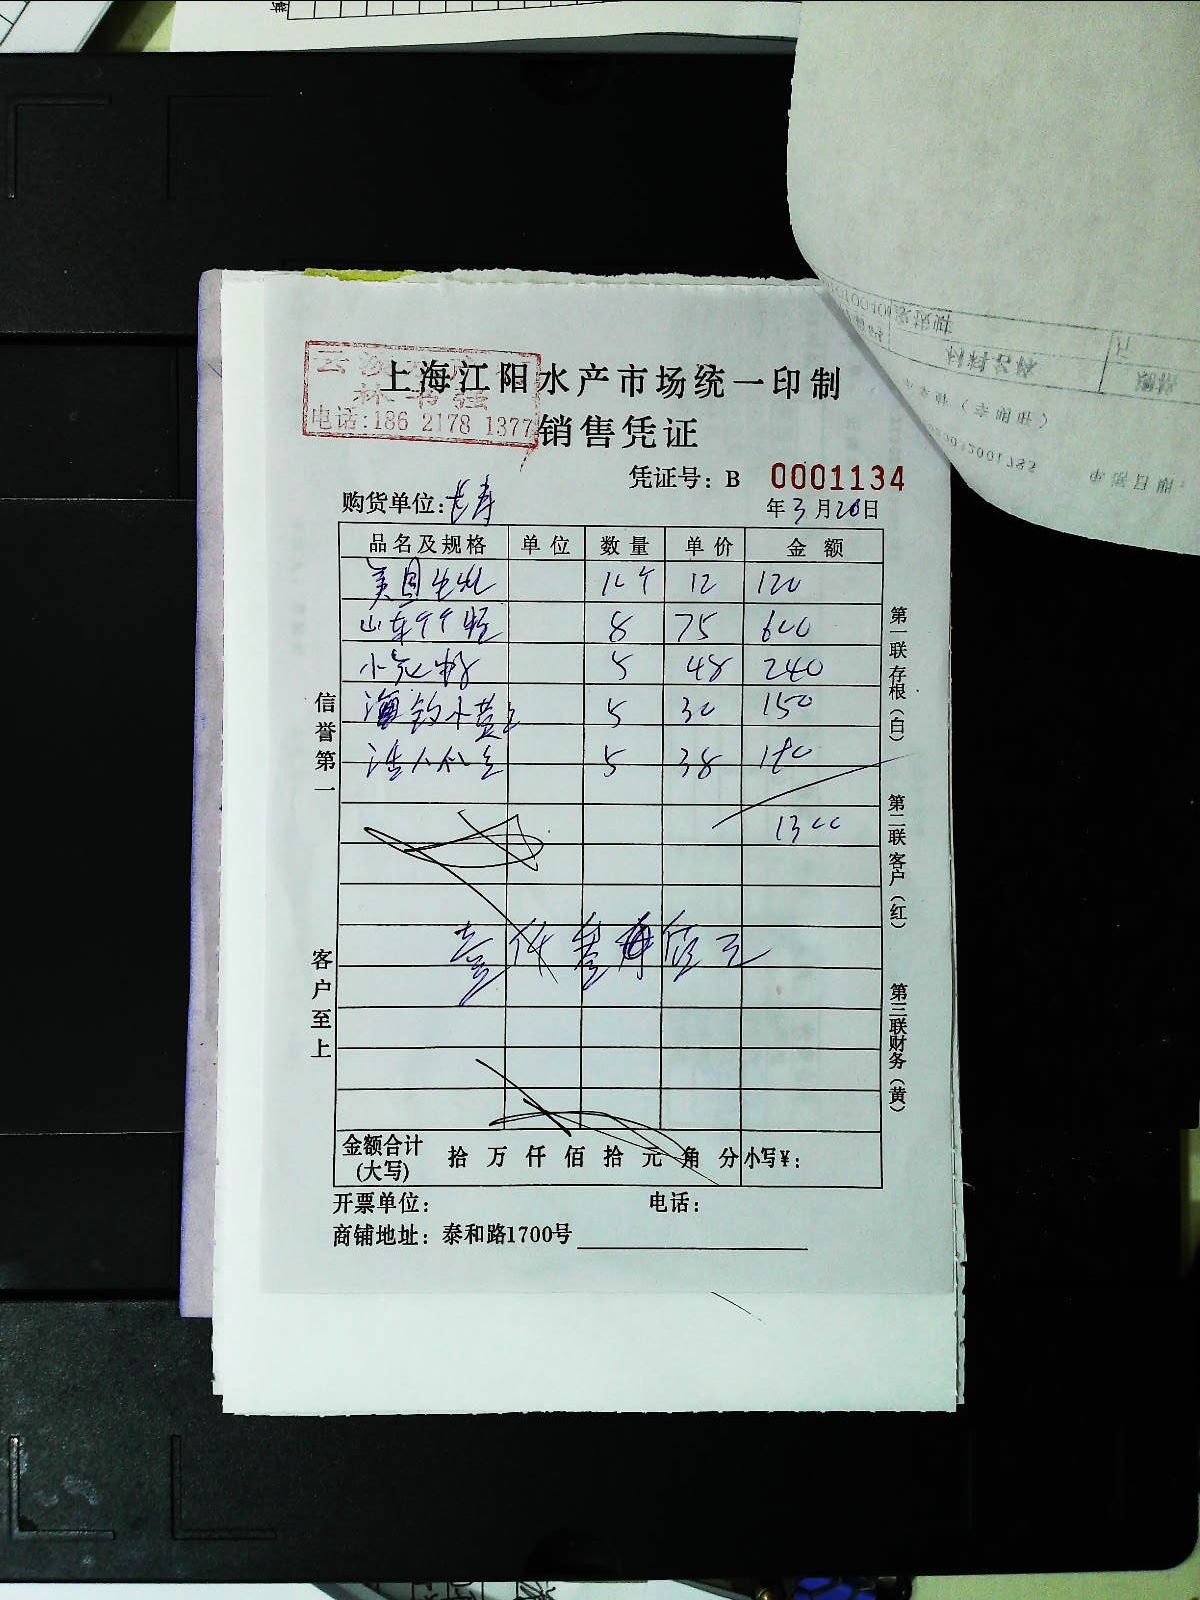 上海江阳水产市场统一印制
电话:186 2178 1377
销售凭证
凭证号: B 0001134
购货单位: 长寿
年3月20日
品名及规格 单位 数量 单价 金额
美国生蚝 10个 12 120
山东 8 75 600
小 5 48 240
海钓小黄鱼 5 30 150
5 38 190
1300
壹仟叁佰元
金额合计(大写) 拾 万 仟 佰 拾 元 角 分 小写¥:
开票单位: 电话:
商铺地址: 泰和路1700号
信誉第一
客户至上
第一联存根(白)
第二联客户(红)
第三联财务(黄)